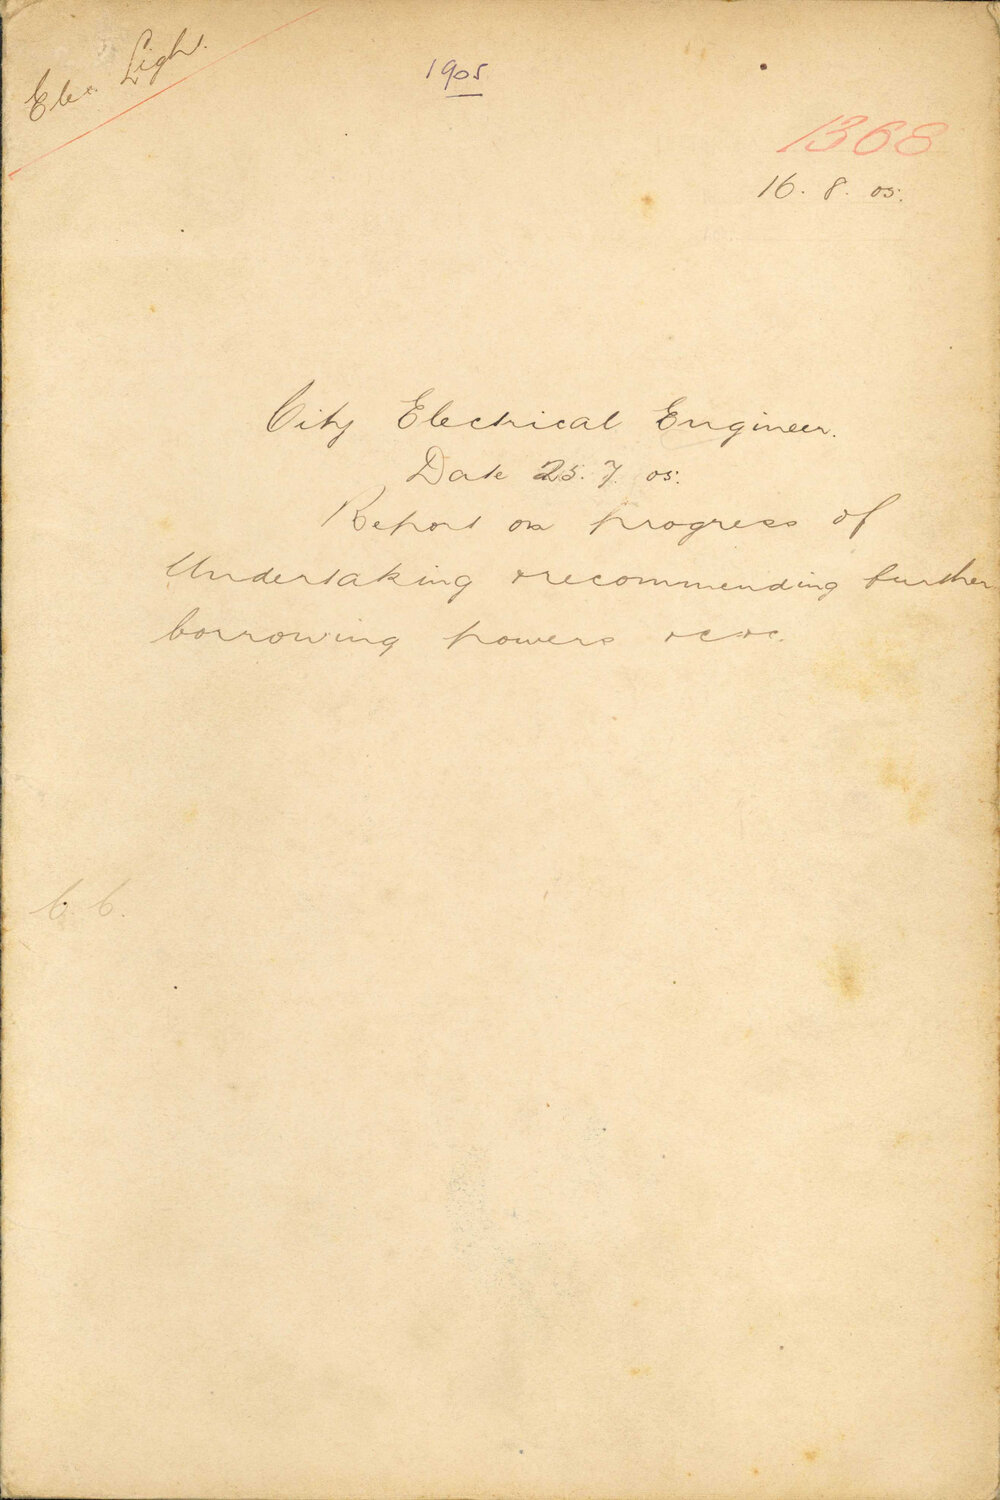 Elec. Light.
1905
1368
16. 8. 05.
City Electrical Engineer.
Date 25. 7. 05.
Report on progress of
Undertaking & recommending further
borrowing powers &c &c.
C. C.